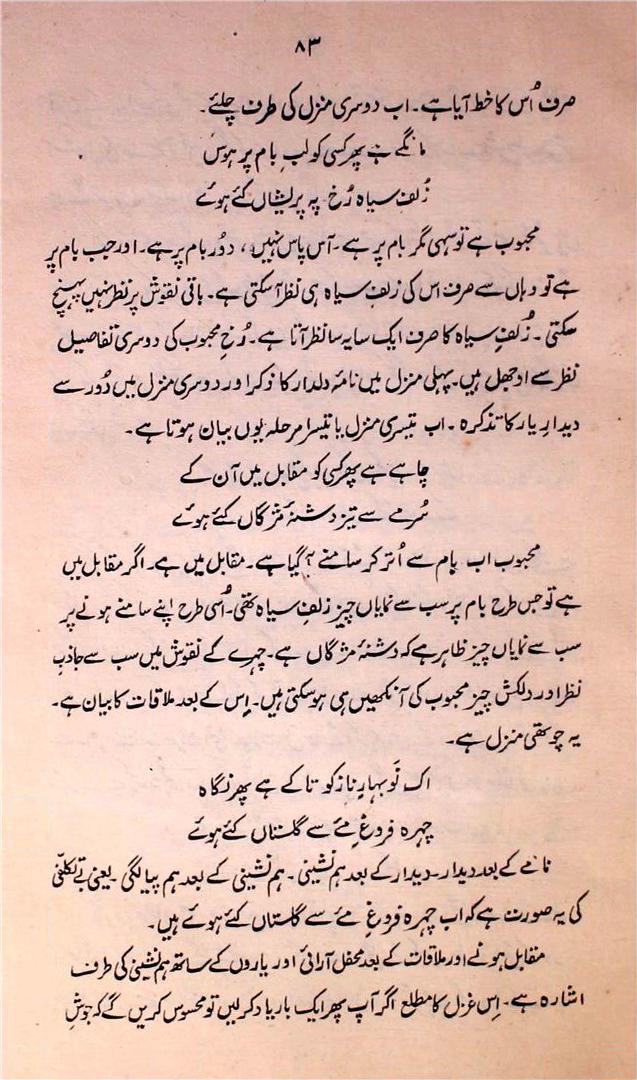 ۸۳
صرف اُس کا خط آیا ہے۔ اب دوسری منزل کی طرف چلئے۔
مانگے ہے پھر کسی کو لبِ بام پر ہوس
زُلفِ سیاہ رُخ پہ پریشاں کئے ہوئے
محبوب ہے تو سہی مگر بام پر ہے۔ آس پاس نہیں، دُور بام پر ہے۔ اور جب بام پر
ہے تو وہاں سے صرف اس کی زلفِ سیاہ ہی نظر آسکتی ہے۔ باقی نقوش پر نظر نہیں پہنچ
سکتی۔ زُلفِ سیاہ کا صرف ایک سایہ سا نظر آتا ہے۔ رُخِ محبوب کی دوسری تفاصیل
نظر سے اوجھل ہیں۔ پہلی منزل میں نامۂ دلدار کا ذکر اور دوسری منزل میں دُور سے
دیدارِ یار کا تذکرہ۔ اب تیسری منزل یا تیسرا مرحلہ یوں بیان ہوتا ہے۔
چاہے ہے پھر کسی کو مقابل میں آن کے
سُرمے سے تیز دشنۂ مژگاں کئے ہوئے
محبوب اب بام سے اُتر کر سامنے آگیا ہے۔ مقابل میں ہے۔ اگر مقابل میں
ہے تو جس طرح بام پر سب سے نمایاں چیز زلفِ سیاہ تھی۔ اُسی طرح اپنے سامنے ہونے پر
سب سے نمایاں چیز ظاہر ہے کہ دشنۂ مژگاں ہے۔ چہرے کے نقوش میں سب سے جاذبِ
نظر اور دلکش چیز محبوب کی آنکھیں ہی ہوسکتی ہیں۔ اِس کے بعد ملاقات کا بیان ہے۔
یہ چوتھی منزل ہے۔
اک نَو بہارِ ناز کو تاکے ہے پھر نگاہ
چہرہ فروغِ مے سے گلستاں کئے ہوئے
نامے کے بعد دیدار۔ دیدار کے بعد ہم نشینی۔ ہم نشینی کے بعد ہم پیالگی۔ یعنی بے تکلفی
کی یہ صورت ہے کہ اب چہرہ فروغِ مے سے گلستاں کئے ہوئے ہیں۔
مقابل ہونے اور ملاقات کے بعد محفل آرائی اور یاروں کے ساتھ ہم نشینی کی طرف
اشارہ ہے۔ اِس غزل کا مطلع اگر آپ پھر ایک بار یاد کرلیں تو محسوس کریں گے کہ جوشِ